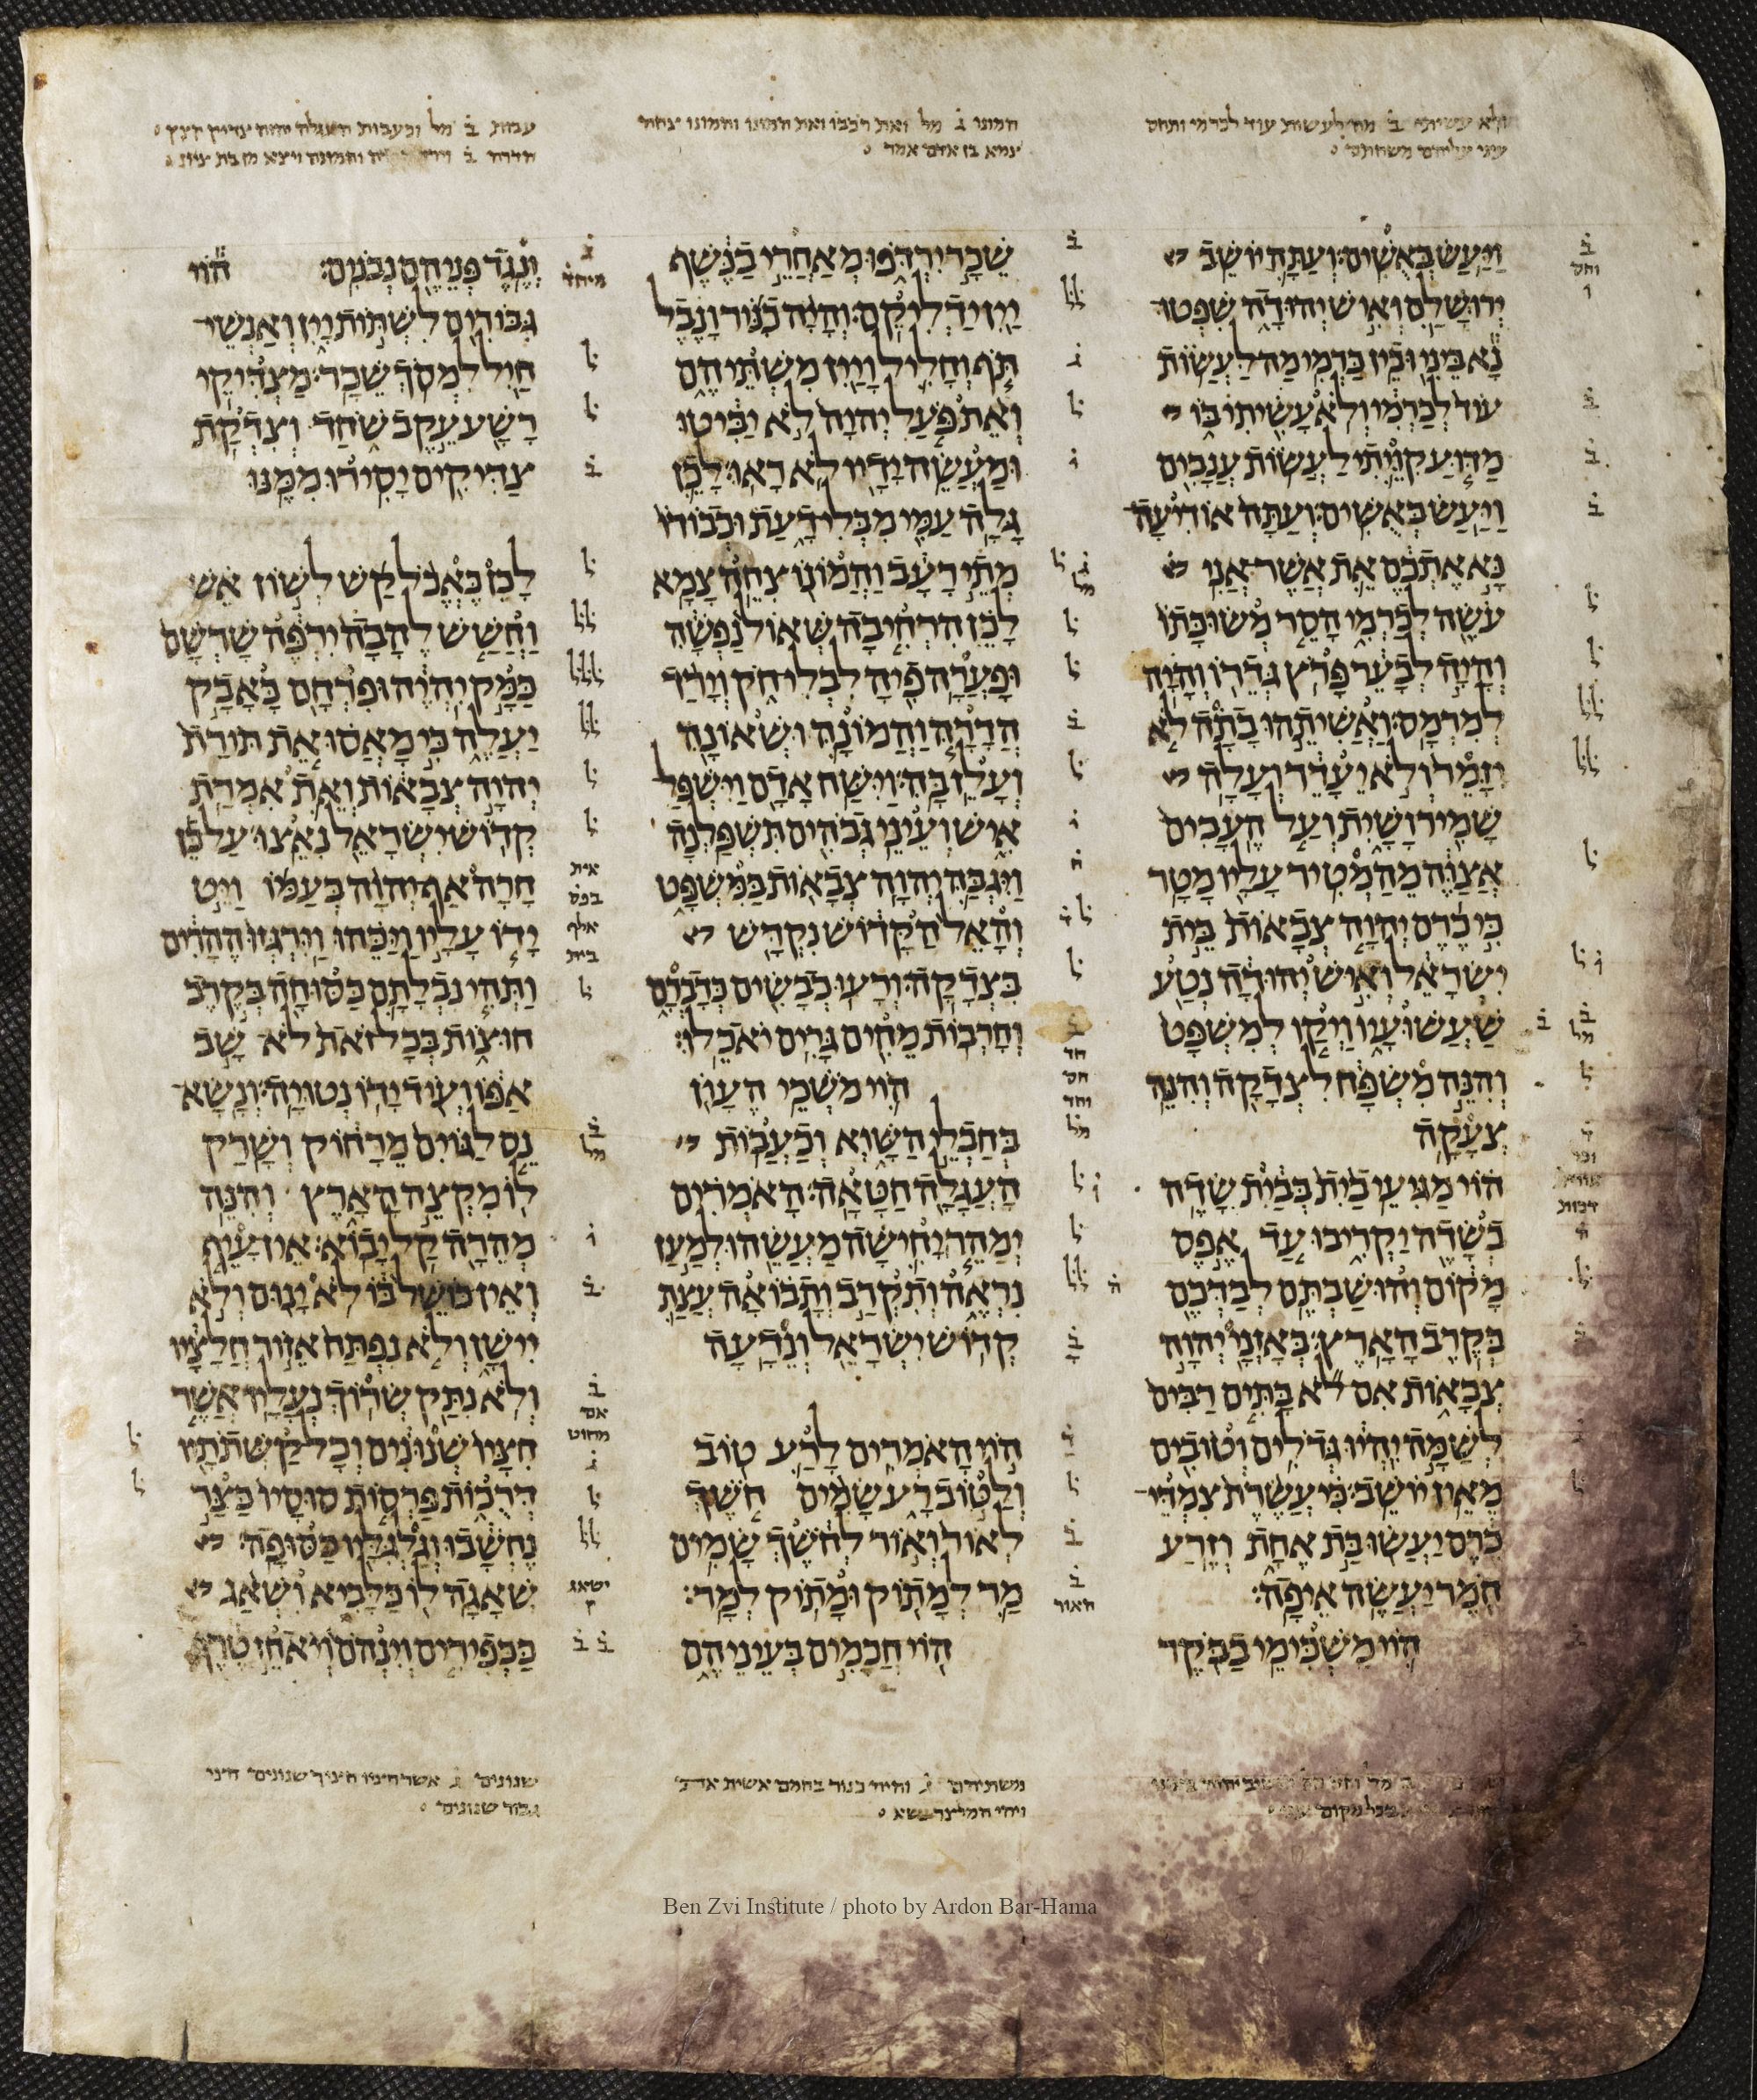 ולא עשיתי ב מה לעשות עוד לכרמי ותחס
עיני עליהם משחתם
המונו ג מל ואת רכבו ואת המונו והמונו צחה
צמא בן אדם אמר
עבות ב מל וכעבות העגלה יהוה צדיק קצץ
הדרה ב וירד הדרה והמונה ויצא מן בת ציון
וַיַּעַשׂ בְּאֻשִׁים׃ וְעַתָּה יוֹשֵׁב
יְרוּשָׁלַםִ וְאִישׁ יְהוּדָה שִׁפְטוּ
נָא בֵּינִי וּבֵין כַּרְמִי׃ מַה לַּעֲשׂוֹת
עוֹד לְכַרְמִי וְלֹא עָשִׂיתִי בּוֹ
מַדּוּעַ קִוֵּיתִי לַעֲשׂוֹת עֲנָבִים
וַיַּעַשׂ בְּאֻשִׁים׃ וְעַתָּה אוֹדִיעָה
נָּא אֶתְכֶם אֵת אֲשֶׁר אֲנִי
עֹשֶׂה לְכַרְמִי הָסֵר מְשׂוּכָּתוֹ
וְהָיָה לְבָעֵר פָּרֹץ גְּדֵרוֹ וְהָיָה
לְמִרְמָס׃ וַאֲשִׁיתֵהוּ בָתָה לֹא
יִזָּמֵר וְלֹא יֵעָדֵר וְעָלָה
שָׁמִיר וָשָׁיִת וְעַל הֶעָבִים
אֲצַוֶּה מֵהַמְטִיר עָלָיו מָטָר׃
כִּי כֶרֶם יְהוָה צְבָאוֹת בֵּית
יִשְׂרָאֵל וְאִישׁ יְהוּדָה נְטַע
שַׁעֲשׁוּעָיו וַיְקַו לְמִשְׁפָּט
וְהִנֵּה מִשְׂפָּח לִצְדָקָה וְהִנֵּה
צְעָקָה׃
הוֹי מַגִּיעֵי בַיִת בְּבַיִת שָׂדֶה
בְשָׂדֶה יַקְרִיבוּ עַד אֶפֶס
מָקוֹם וְהוּשַׁבְתֶּם לְבַדְּכֶם
בְּקֶרֶב הָאָרֶץ׃ בְּאָזְנָי יְהוָה
צְבָאוֹת אִם לֹא בָּתִּים רַבִּים
לְשַׁמָּה יִהְיוּ גְּדֹלִים וְטוֹבִים
מֵאֵין יוֹשֵׁב׃ כִּי עֲשֶׂרֶת צִמְדֵּי
כֶרֶם יַעֲשׂוּ בַּת אֶחָת וְזֶרַע
חֹמֶר יַעֲשֶׂה אֵיפָה׃
הוֹי מַשְׁכִּימֵי בַבֹּקֶר
שֵׁכָר יִרְדֹּפוּ מְאַחֲרֵי בַנֶּשֶׁף
יַיִן יַדְלִיקֵם׃ וְהָיָה כִנּוֹר וָנֶבֶל
תֹּף וְחָלִיל וָיַיִן מִשְׁתֵּיהֶם
וְאֵת פֹּעַל יְהוָה לֹא יַבִּיטוּ
וּמַעֲשֵׂה יָדָיו לֹא רָאוּ׃ לָכֵן
גָּלָה עַמִּי מִבְּלִי דָעַת וּכְבוֹדוֹ
מְתֵי רָעָב וַהֲמוֹנוֹ צִחֵה צָמָא׃
לָכֵן הִרְחִיבָה שְּׁאוֹל נַפְשָׁהּ
וּפָעֲרָה פִיהָ לִבְלִי חֹק וְיָרַד
הֲדָרָהּ וַהֲמוֹנָהּ וּשְׁאוֹנָהּ
וְעָלֵז בָּהּ׃ וַיִּשַּׁח אָדָם וַיִּשְׁפַּל
אִישׁ וְעֵינֵי גְבֹהִים תִּשְׁפַּלְנָה׃
וַיִּגְבַּהּ יְהוָה צְבָאוֹת בַּמִּשְׁפָּט
וְהָאֵל הַקָּדוֹשׁ נִקְדָּשׁ
בִּצְדָקָה׃ וְרָעוּ כְבָשִׂים כְּדָבְרָם
וְחָרְבוֹת מֵחִים גָּרִים יֹאכֵלוּ׃
הוֹי מֹשְׁכֵי הֶעָוֺן
בְּחַבְלֵי הַשָּׁוְא וְכַעֲבוֹת
הָעֲגָלָה חַטָּאָה׃ הָאֹמְרִים
יְמַהֵר יָחִישָׁה מַעֲשֵׂהוּ לְמַעַן
נִרְאֶה וְתִקְרַב וְתָבוֹאָה עֲצַת
קְדוֹשׁ יִשְׂרָאֵל וְנֵדָעָה׃
הוֹי הָאֹמְרִים לָרַע טוֹב
וְלַטּוֹב רָע שָׂמִים חֹשֶׁךְ
לְאוֹר וְאוֹר לְחֹשֶׁךְ שָׂמִים
מַר לְמָתוֹק וּמָתוֹק לְמָר׃
הוֹי חֲכָמִים בְּעֵינֵיהֶם
וְנֶגֶד פְּנֵיהֶם נְבֹנִים׃ הוֹי
גִּבּוֹרִים לִשְׁתּוֹת יָיִן וְאַנְשֵׁי
חַיִל לִמְסֹךְ שֵׁכָר׃ מַצְדִּיקֵי
רָשָׁע עֵקֶב שֹׁחַד וְצִדְקַת
צַדִּיקִים יָסִירוּ מִמֶּנּוּ׃
לָכֵן כֶּאֱכֹל קַשׁ לְשׁוֹן אֵשׁ
וַחֲשַׁשׁ לֶהָבָה יִרְפֶּה שָׁרְשָׁם
כַּמָּק יִהְיֶה וּפִרְחָם כָּאָבָק
יַעֲלֶה כִּי מָאֲסוּ אֵת תּוֹרַת
יְהוָה צְבָאוֹת וְאֵת אִמְרַת
קְדוֹשׁ יִשְׂרָאֵל נִאֵצוּ׃ עַל כֵּן
חָרָה אַף יְהוָה בְּעַמּוֹ וַיֵּט
יָדוֹ עָלָיו וַיַּכֵּהוּ וַיִּרְגְּזוּ הֶהָרִים
וַתְּהִי נִבְלָתָם כַּסּוּחָה בְּקֶרֶב
חוּצוֹת בְּכָל זֹאת לֹא שָׁב
אַפּוֹ וְעוֹד יָדוֹ נְטוּיָה׃ וְנָשָׂא
נֵס לַגּוֹיִם מֵרָחוֹק וְשָׁרַק
לוֹ מִקְצֵה הָאָרֶץ וְהִנֵּה
מְהֵרָה קַל יָבוֹא׃ אֵין עָיֵף
וְאֵין כּוֹשֵׁל בּוֹ לֹא יָנוּם וְלֹא
יִישָׁן וְלֹא נִפְתַּח אֵזוֹר חֲלָצָיו
וְלֹא נִתַּק שְׂרוֹךְ נְעָלָיו׃ אֲשֶׁר
חִצָּיו שְׁנוּנִים וְכָל קַשְּׁתֹתָיו
דְּרֻכוֹת פַּרְסוֹת סוּסָיו כַּצַּר
נֶחְשָׁבוּ וְגַלְגִּלָּיו כַּסּוּפָה׃
שְׁאָגָה לוֹ כַּלָּבִיא וְשָׁאַג
כַּכְּפִירִים וְיִנְהֹם וְיֹאחֵז טֶרֶף
משתיהם ג והיה כנור בחמם אשית את
ויהי המלצר נשא
שנונים ג אשר חציו חציך שנונים חצי
גבור שנונים
Ben Zvi Institute / photo by Ardon Bar-Hama